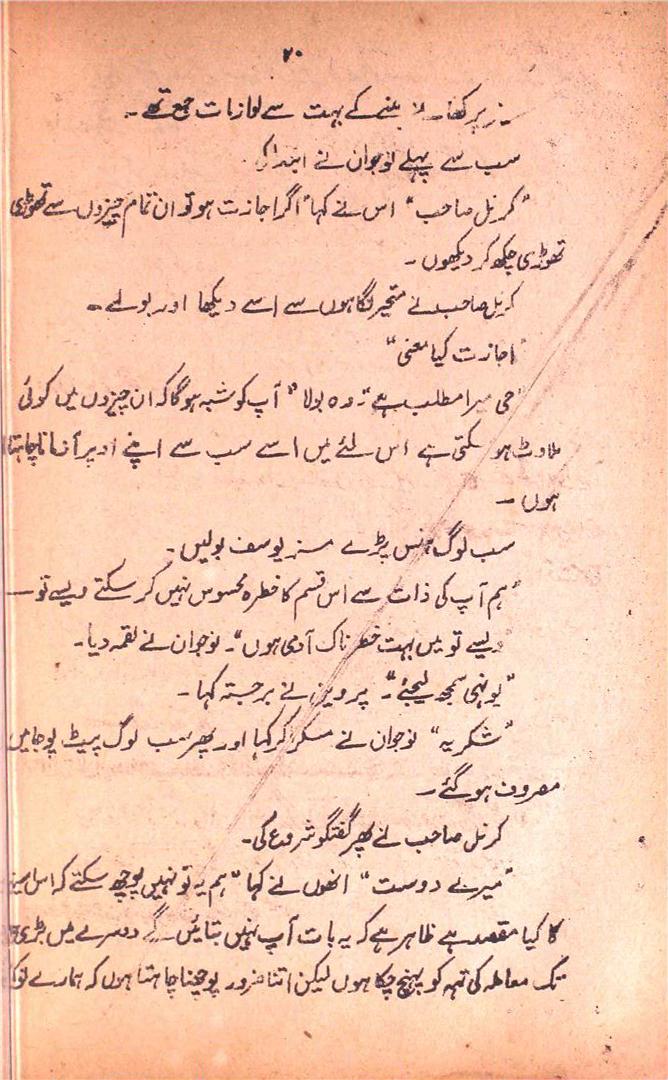 ۲۰
میز پر کھانے پینے کے بہت سے لوازمات جمع تھے۔
سب سے پہلے نوجوان نے ابتدا کی
"کرنل صاحب" اس نے کہا "اگر اجازت ہو تو ان تمام چیزوں سے تھوڑی
تھوڑی چکھ کر دیکھوں۔
کرنل صاحب نے متحیر نگاہوں سے اسے دیکھا اور بولے۔
"اجازت کیا معنی"
"جی میرا مطلب ہے" وہ بولا "آپ کو شبہ ہو گا کہ ان چیزوں میں کوئی
ملاوٹ ہو سکتی ہے اس لئے میں اسے سب سے اپنے اوپر آزمانا چاہتا
ہوں۔
سب لوگ ہنس پڑے مسز یوسف بولیں۔
"ہم آپ کی ذات سے اس قسم کا خطرہ محسوس نہیں کر سکتے ویسے تو—
ویسے تو میں بہت خطرناک آدمی ہوں"۔ نوجوان نے لقمہ دیا۔
"یونہی سمجھ لیجئے"۔ پروین نے برجستہ کہا۔
"شکریہ" نوجوان نے مسکرا کر کہا اور پھر سب لوگ پیٹ پوجا میں
مصروف ہو گئے۔
کرنل صاحب نے پھر گفتگو شروع کی۔
"میرے دوست" انھوں نے کہا "ہم یہ تو نہیں پوچھ سکتے کہ اس
کا کیا مقصد ہے ظاہر ہے کہ یہ بات آپ نہیں بتائیں گے دوسرے میں بڑی
تک معاملہ کی تہہ کو پہنچ چکا ہوں لیکن اتنا ضرور پوچھنا چاہتا ہوں کہ ہمارے